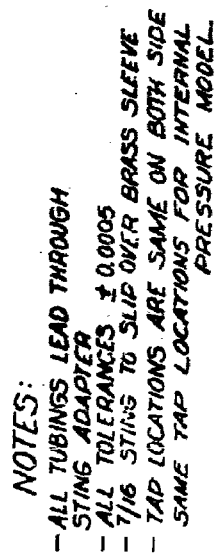 NOTES:
- ALL TUBINGS LEAD THROUGH
STING ADAPTER
- ALL TOLERANCES ± 0.0005
- 7/16 STING TO SLIP OVER BRASS SLEEVE
- TAP LOCATIONS ARE SAME ON BOTH SIDE
SAME TAP LOCATIONS FOR INTERNAL
PRESSURE MODEL